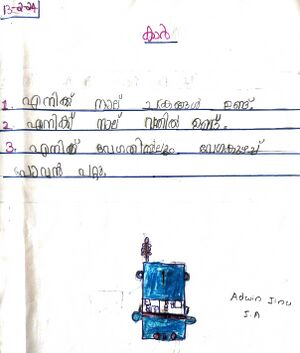 13-2-24
കാർ
1. എനിക്ക് നാല് ചക്രങ്ങൾ ഉണ്ട്.
2. എനിക്ക് നാല് വതിൽ ഉണ്ട്.
3. എനിക്ക് വേഗതിലും
പോവൻ പറ്റും.
Adwin Jinu
I.A